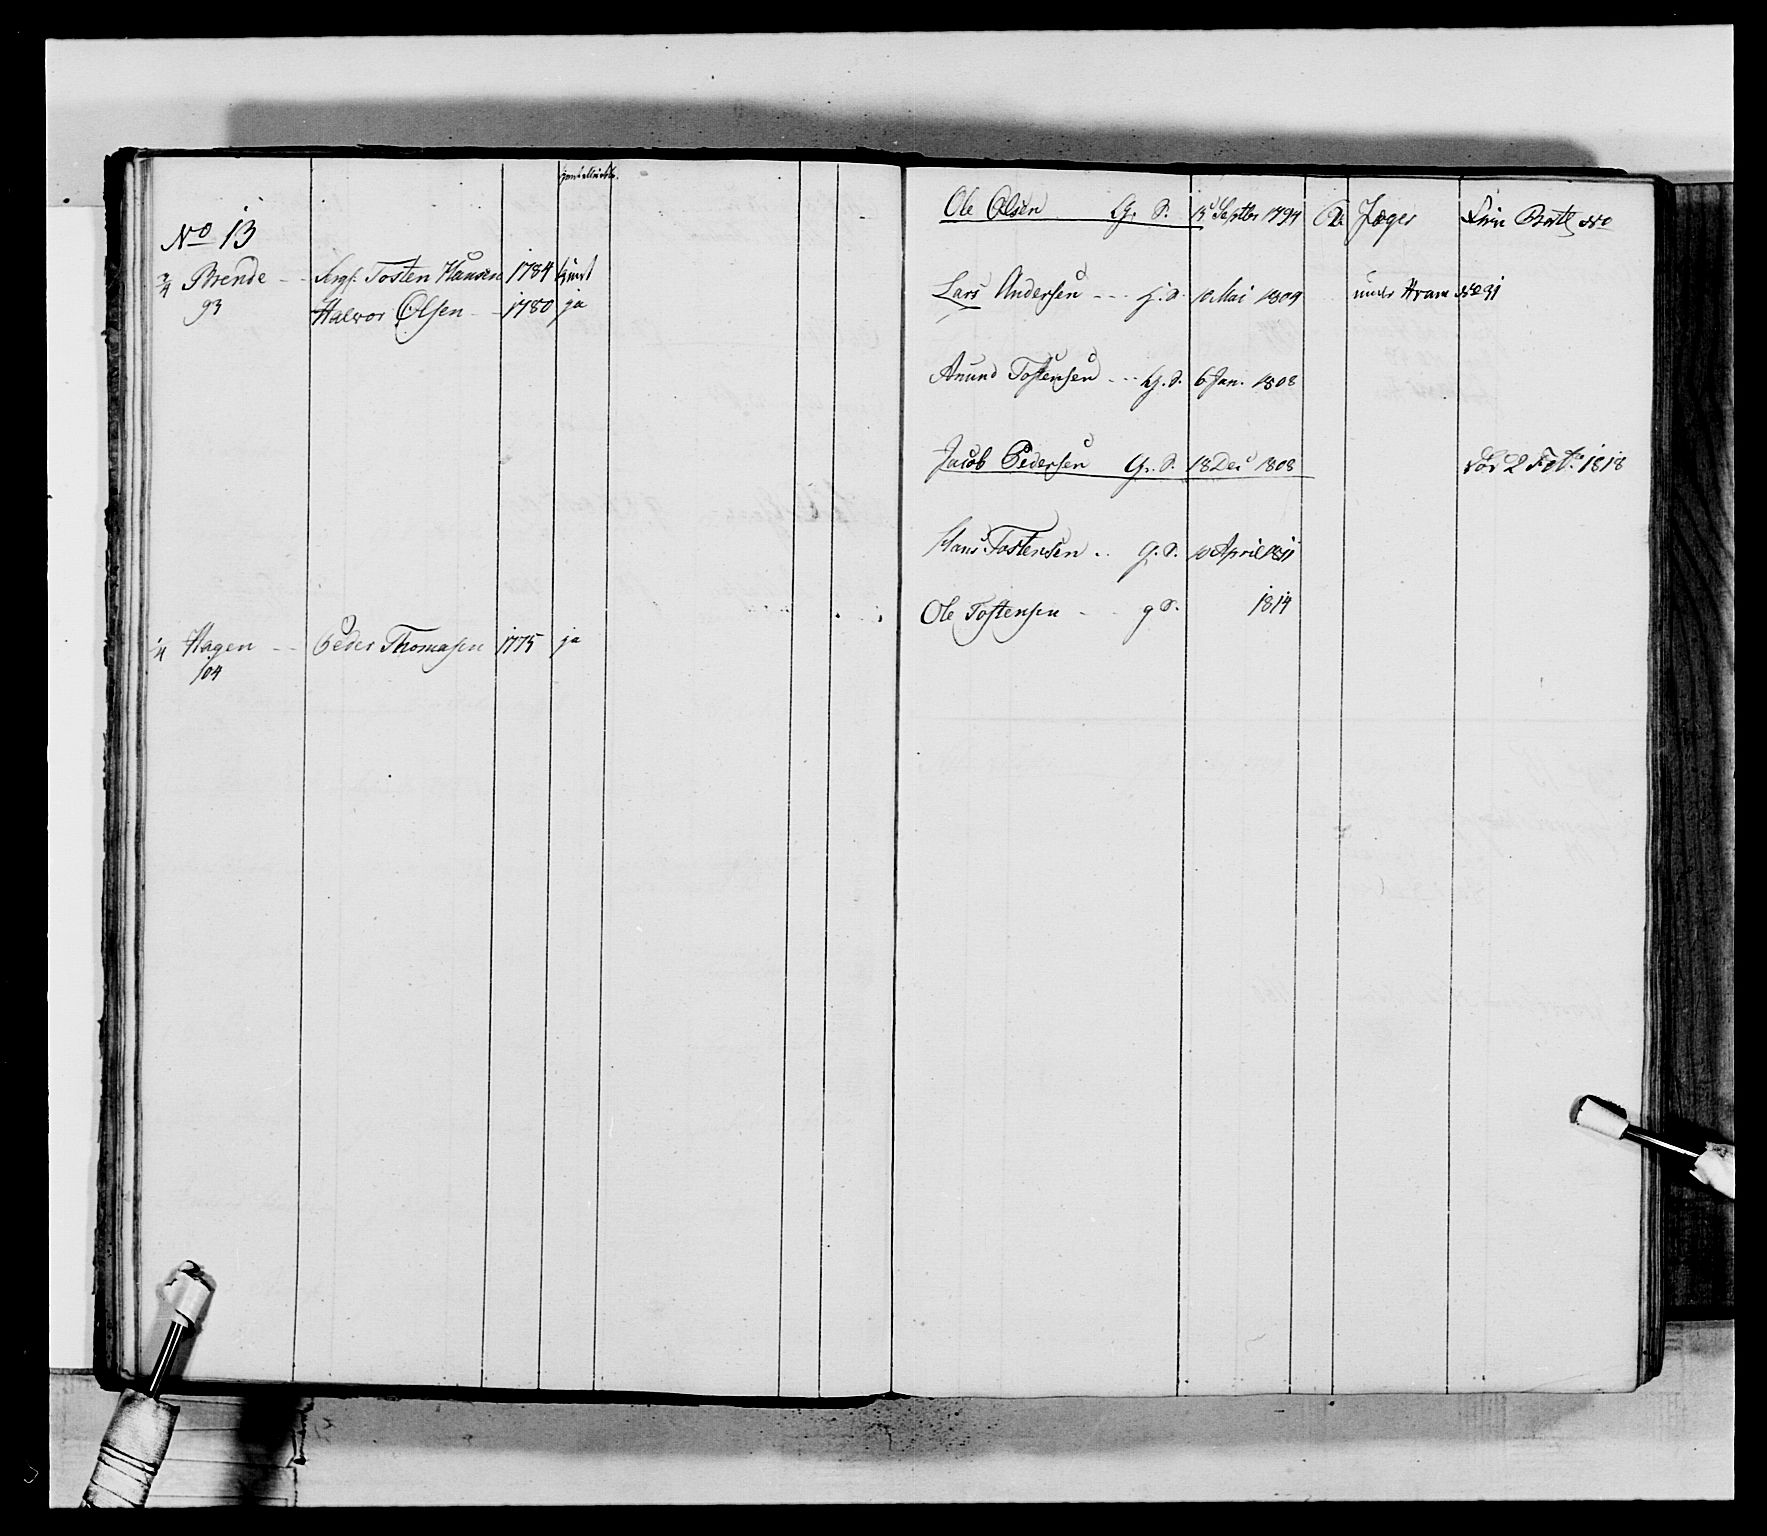 No 13
3/4 Brende - - Sergt. Tosten Hansen 1784
93 Halvor Olsen - - 1780 ja
1/4 Hagen - - Peder Thomasen 1775 ja
104
Ole Olsen G. S. 15 Septbr 1794 Jæger No
Lars Andersen - - - G. S. 10 Mai 1804 under No 31
Anund Tostensen - - - G. S. 6 Jan. 1808
Jacob Pedersen G. S. 18 Dec 1808 død 2 Feb. 1818
Hans Tostensen - - G. S. 10 April 1811
Ole Tostensen - - - g S. 1814